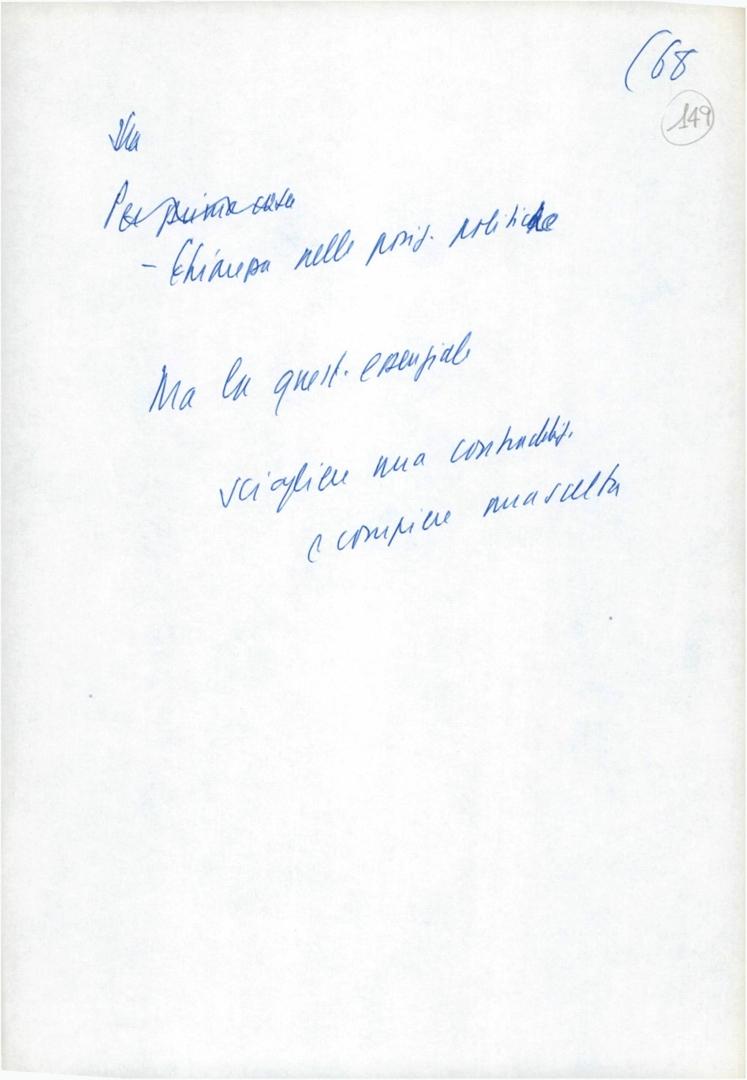 (68
149
Per prima cosa
- Chiarezza nelle posiz. politiche
Ma la quest. essenziale
sciogliere una contraddiz.
e compiere una scelta